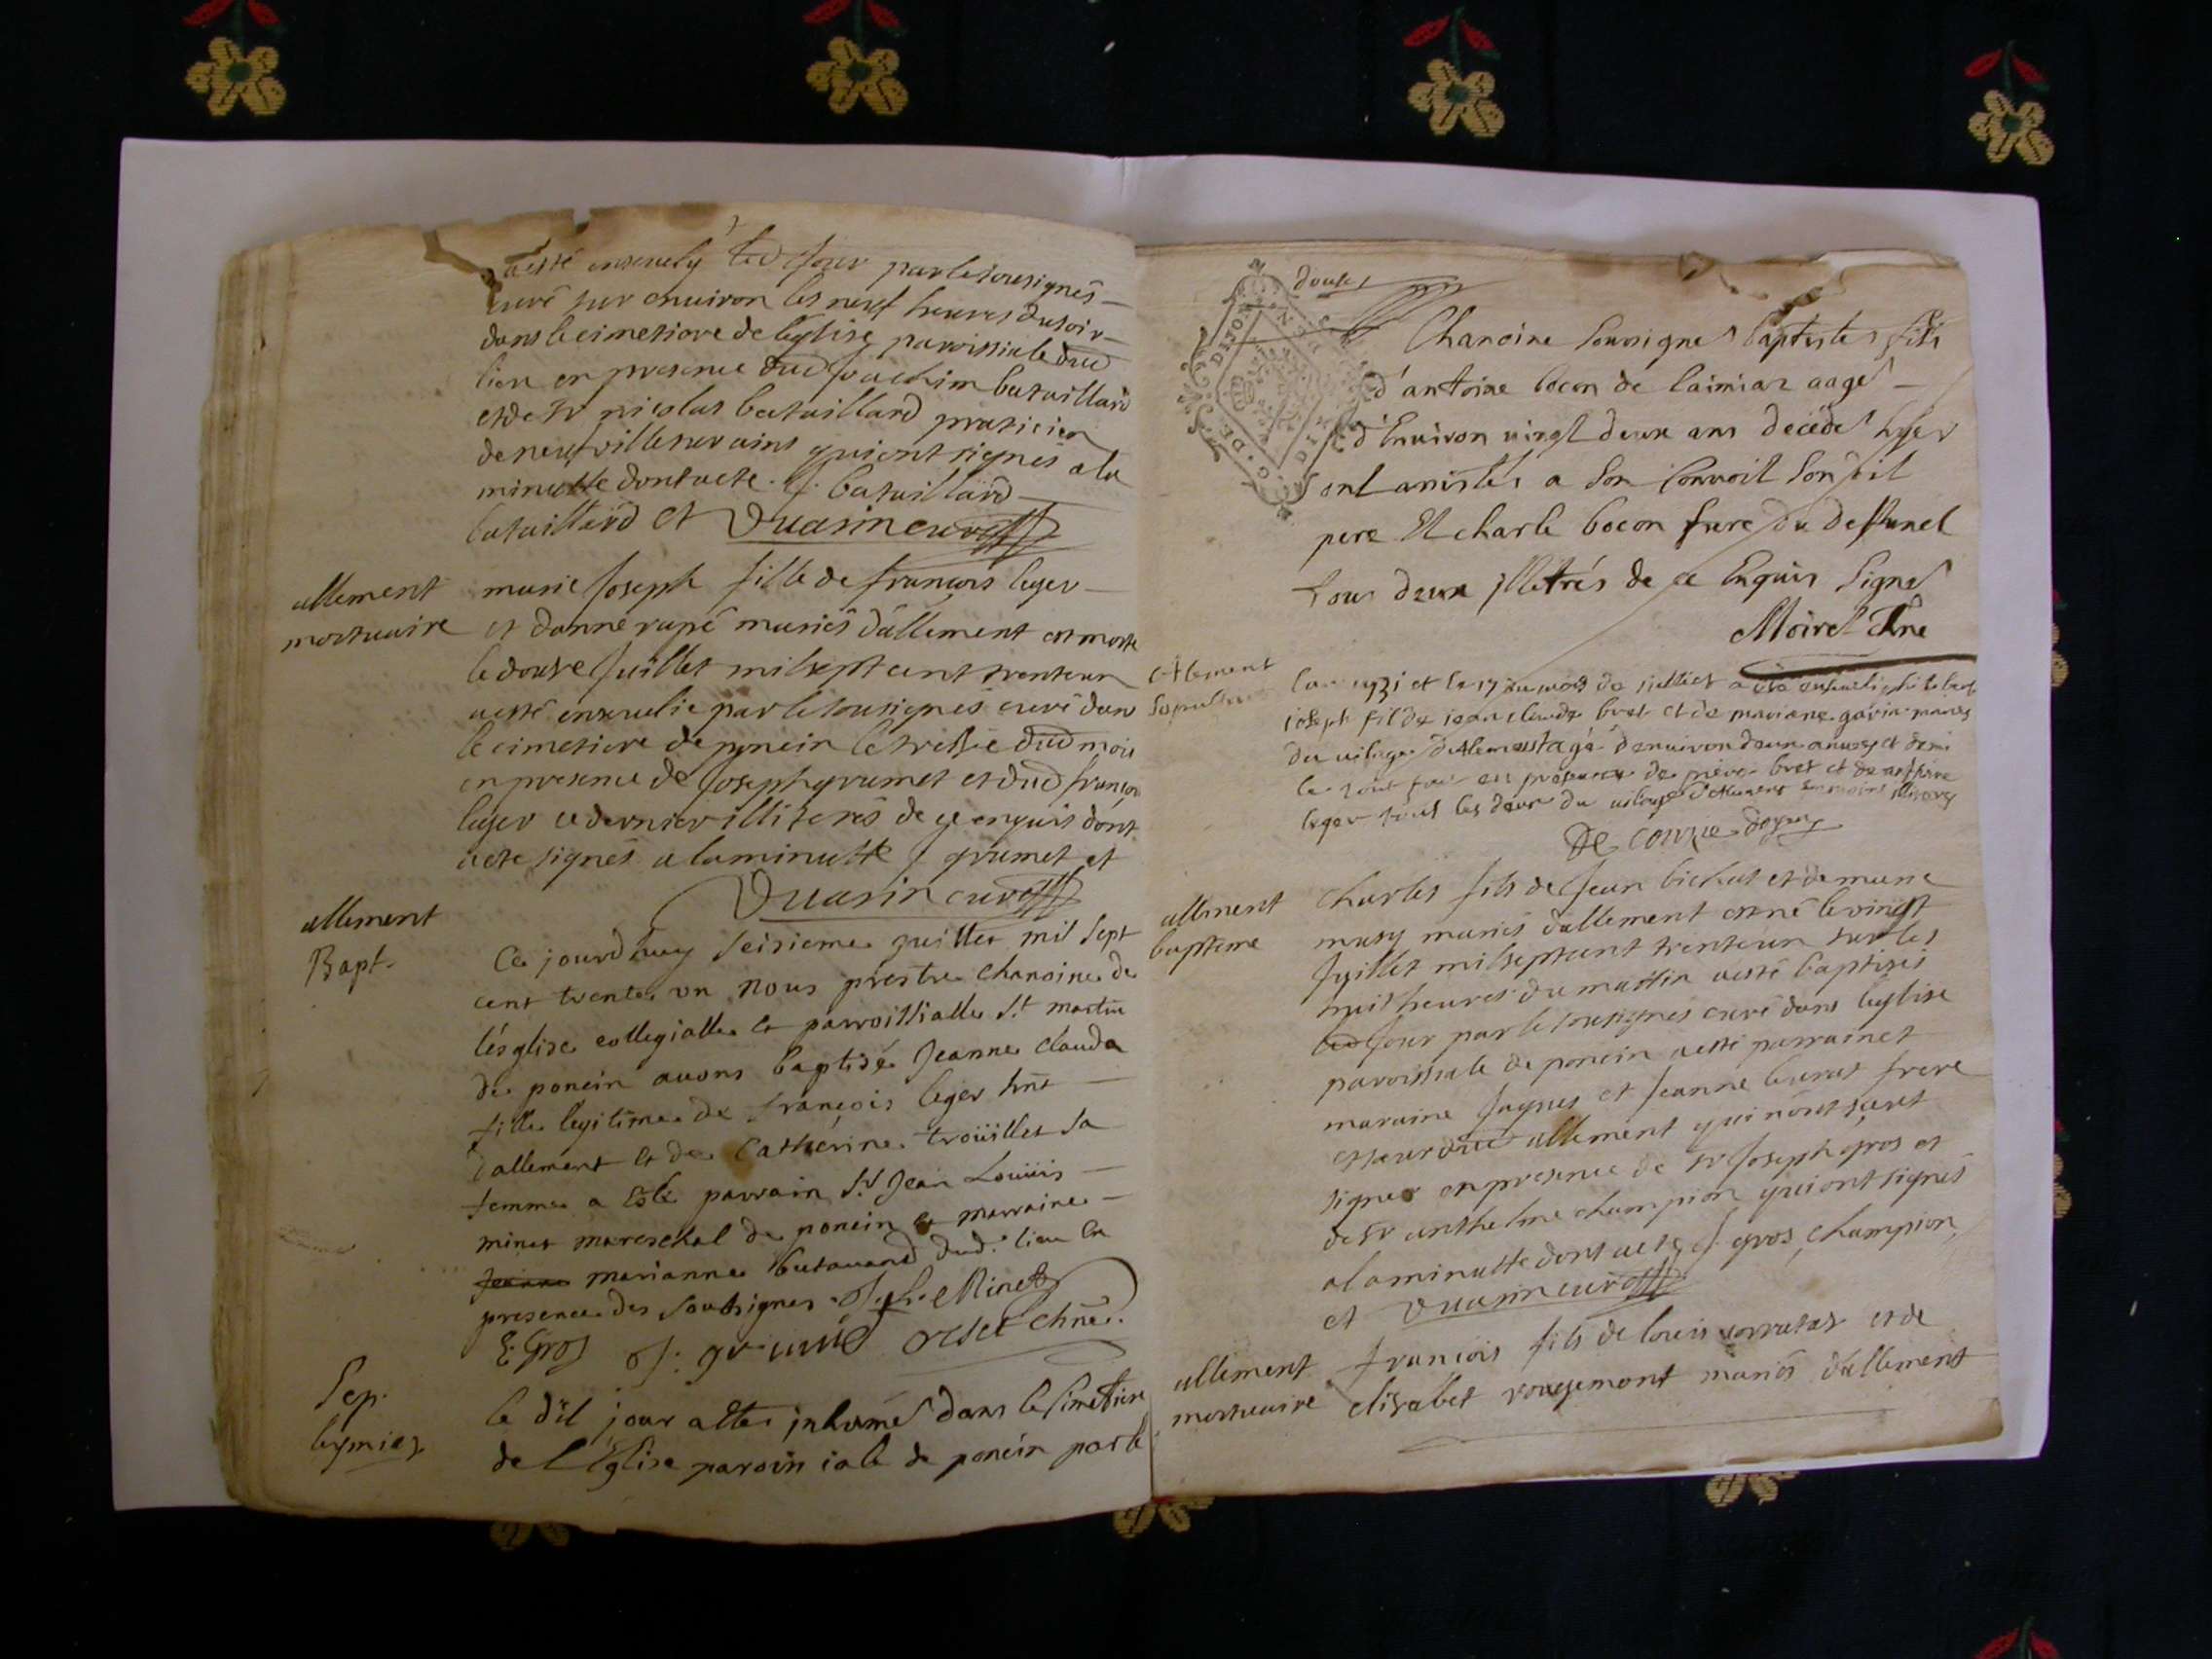 aesté enseuely led Jour par le sousignés
curé sur enuiron les neuf heures du soir
dans le cimetiere de léglise paroissiale dud
lieu en presence dud Joachim bataillard
et de Sr nicolas bataillard praticien
de neufville sur ains qui ont signés a la
minutte dont acte. J. bataillard
bataillard et Vuarin curé
allement
mortuaire
marie Joseph fille de françois leger
et danne rapé mariés dallement est morte
le douse Juillet mil sept cent trenteun
aesté enseuelie par le sousignés curé dans
le cimetiere de poncin le dud mois
en presence de Joseph grumet et dud françois
leger ce dernier illiterés de ce enquis dont
acte signés a la minutte J grumet et
Vuarin curé
allement
Bapt.
Ce jourdhuy seisieme juillet mil sept
cent trente un nous prestre chanoine de
lésglise collegialle et parroissialle St martin
de poncin auons baptisé Jeanne clauda
fille legitime de françois leger
dallement et de Catherine troüillet sa
femme a esté parrain Sr Jean Loüis
minet mareschal de poncin et marraine
Jeanne marianne dud. lieu en
presence des soutsignes. Minet
E. Gros
Sep.
leymiaz
le dit jour a este inhumé dans le simetiere
de l Eglise paroissiale de poncin par le
douse
DIJON
Chanoine soussigné baptiste fils
d'antoine bocon de laimiaz aagé
d'Enuiron uingt deux ans decedé hyer
ont assistés a son conuoit son dit
pere Et charle bocon frere du deffunct
tous deux illetrés de ce Enquis signé
Moiret Chne
Allement
Sepulture
lan 1731 et le 17 du mois de juilliet a été enseueli
ioseph fil de iean claude bret et de mariane mariés
du uilage d'Alement agé denuiron deux annés et demi
le tout fait en presence de pierre bret et de
leger tous les deux du uilage d'Allement
De Conne doyen
allement
baptême
Charles fils de Jean bichat et de marie
mury mariés dallement est né le vingt
Juillet mil sept cent trenteun sur les
huit heures du mattin aesté baptisés
led Jour par le sousignés curé dans léglise
paroissiale de poncin aesté parrain et
maraine Jaques et Jeanne frere
et seur dud allement qui nont sçeut
signer en presence de Sr Joseph gros et
de Sr anthelme champion qui ont signés
a la minutte dont acte J. gros, champion,
et Vuarin curé
allement
mortuaire
françois fils de louis et de
elisabet rougemont mariés dallement